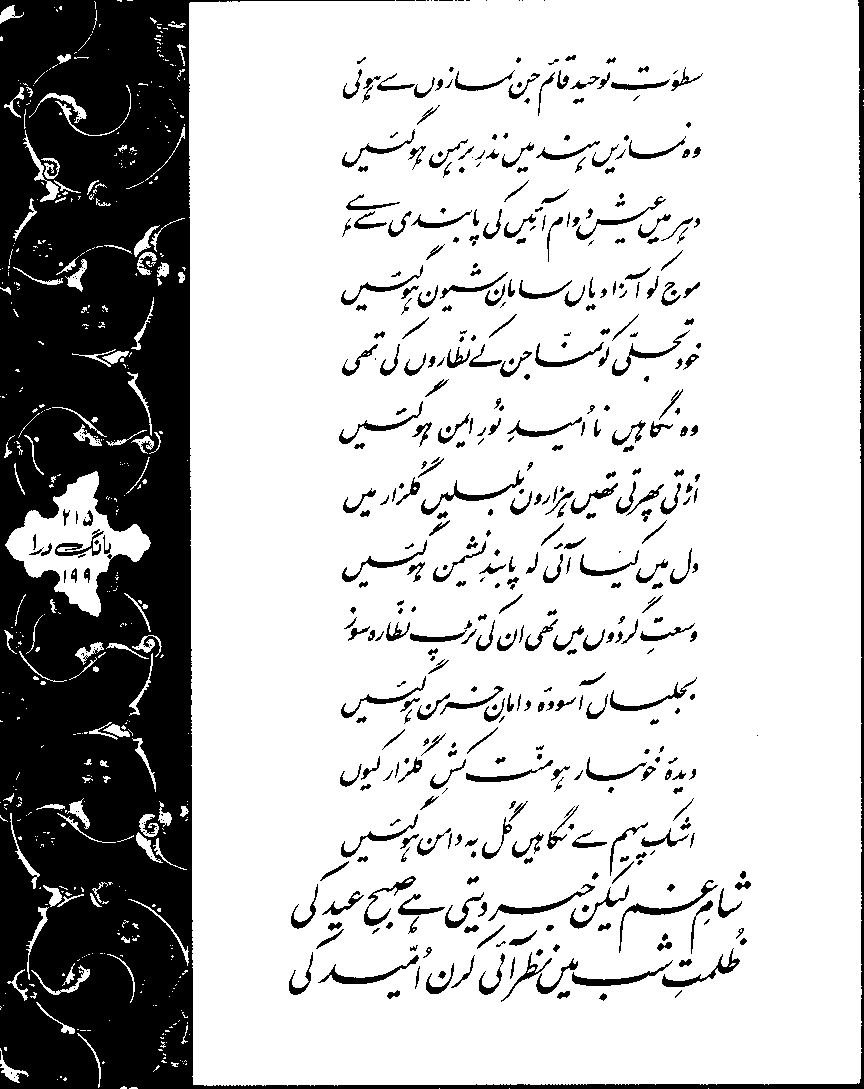 سطوَتِ توحید قائم جن نمازوں سے ہوئی
وہ نمازیں ہند میں نذرِ برہمن ہوگئیں
دہر میں عیشِ دوام آئیں کی پابندی سے ہے
موج کو آزادیاں سامانِ شیون ہوگئیں
خود تجلّی کو تمنّا جن کے نظّاروں کی تھی
وہ نگاہیں نا اُمیدِ نُورِ ایمن ہوگئیں
اُڑتی پھرتی تھیں ہزاروں بُلبلیں گلزار میں
دل میں کیا آئی کہ پابندِ نشیمن ہوگئیں
وسعتِ گردُوں میں تھی ان کی تڑپ نظّارہ سوز
بجلیاں آسودۂ دامانِ خرمن ہوگئیں
دیدۂ خُونبار ہو منّت کشِ گلزار کیوں
اشکِ پیہم سے نگاہیں گُل بہ دامن ہوگئیں
شامِ غم لیکن خبر دیتی ہے صبحِ عید کی
ظُلمتِ شب میں نظر آئی کرن اُمّید کی
۲۱۵
بانگِ درا
۱۹۹